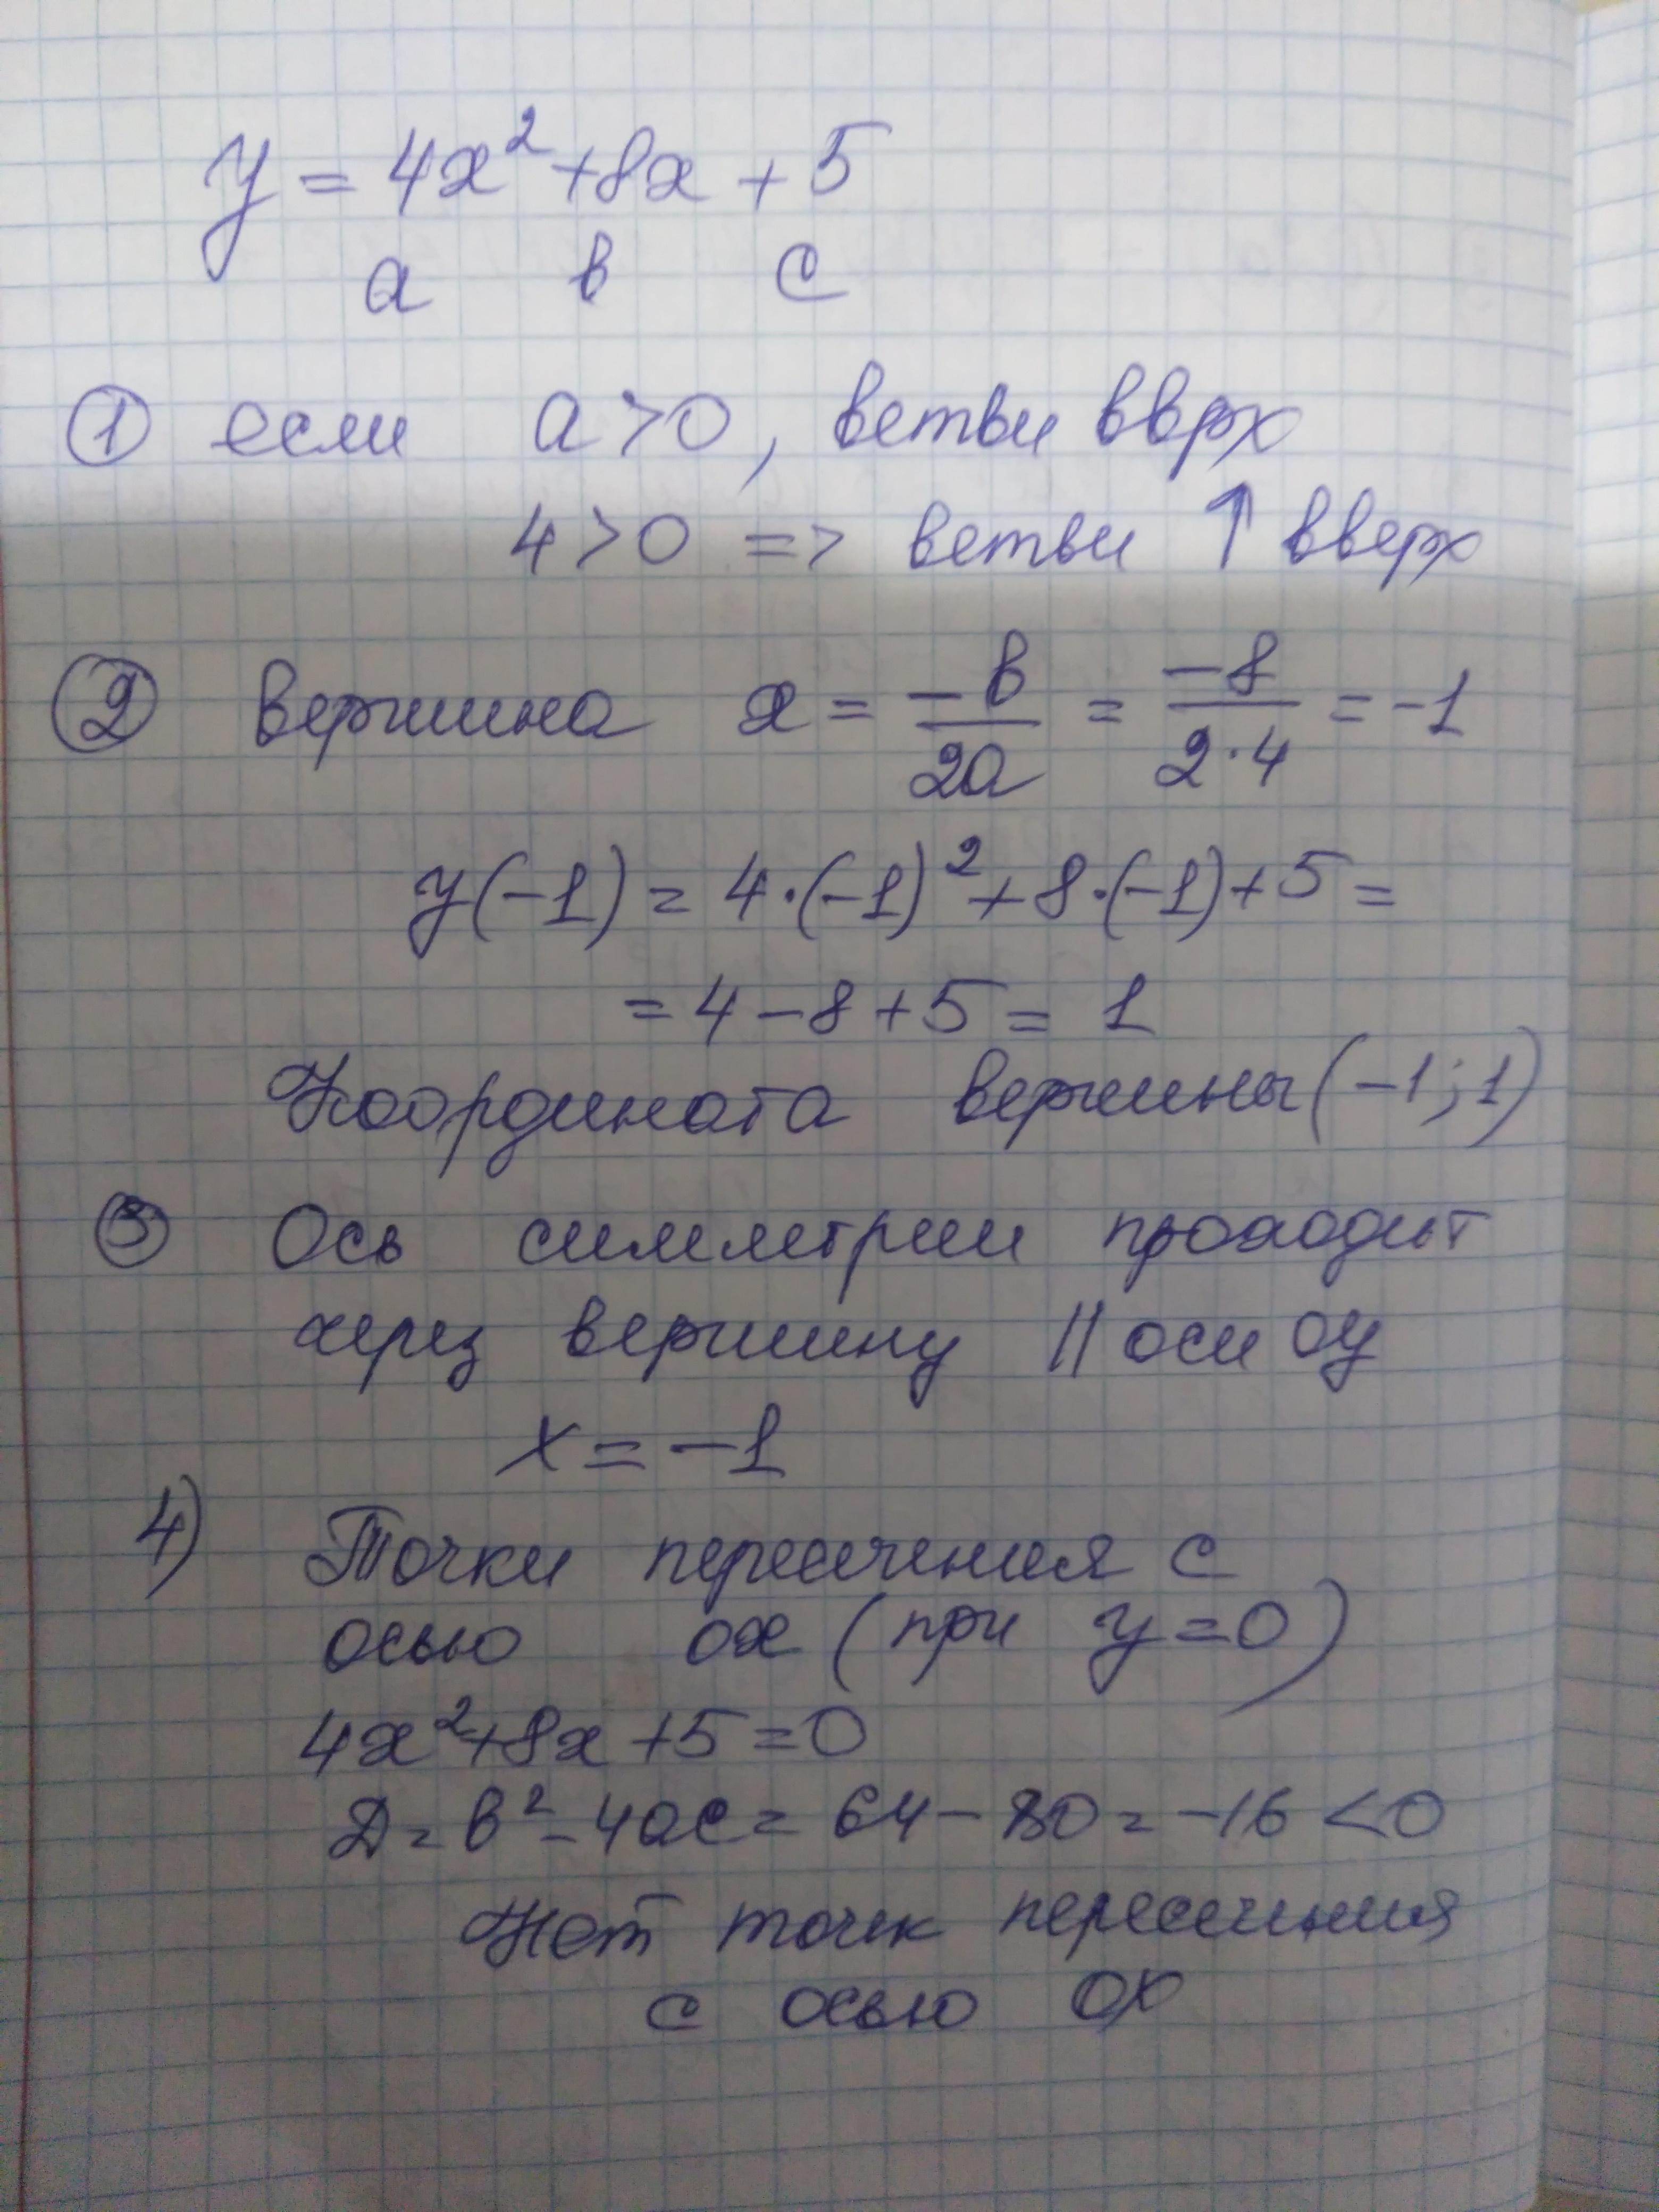 y = 4x² + 8x + 5
a в c
① если a > 0, ветви вврх
4 > 0 => ветви ↑ вверх
② Вершина x = -в/2a = -8/2·4 = -1
y(-1) = 4·(-1)² + 8·(-1) + 5 =
= 4 - 8 + 5 = 1
Координата вершины (-1; 1)
③ Ось симметрии проходит
через вершину || оси оy
x = -1
4) Точки пересечения с
осью ox (при y = 0)
4x² + 8x + 5 = 0
D = в² - 4ac = 64 - 80 = -16 < 0
Нет точек пересечения
с осью OX